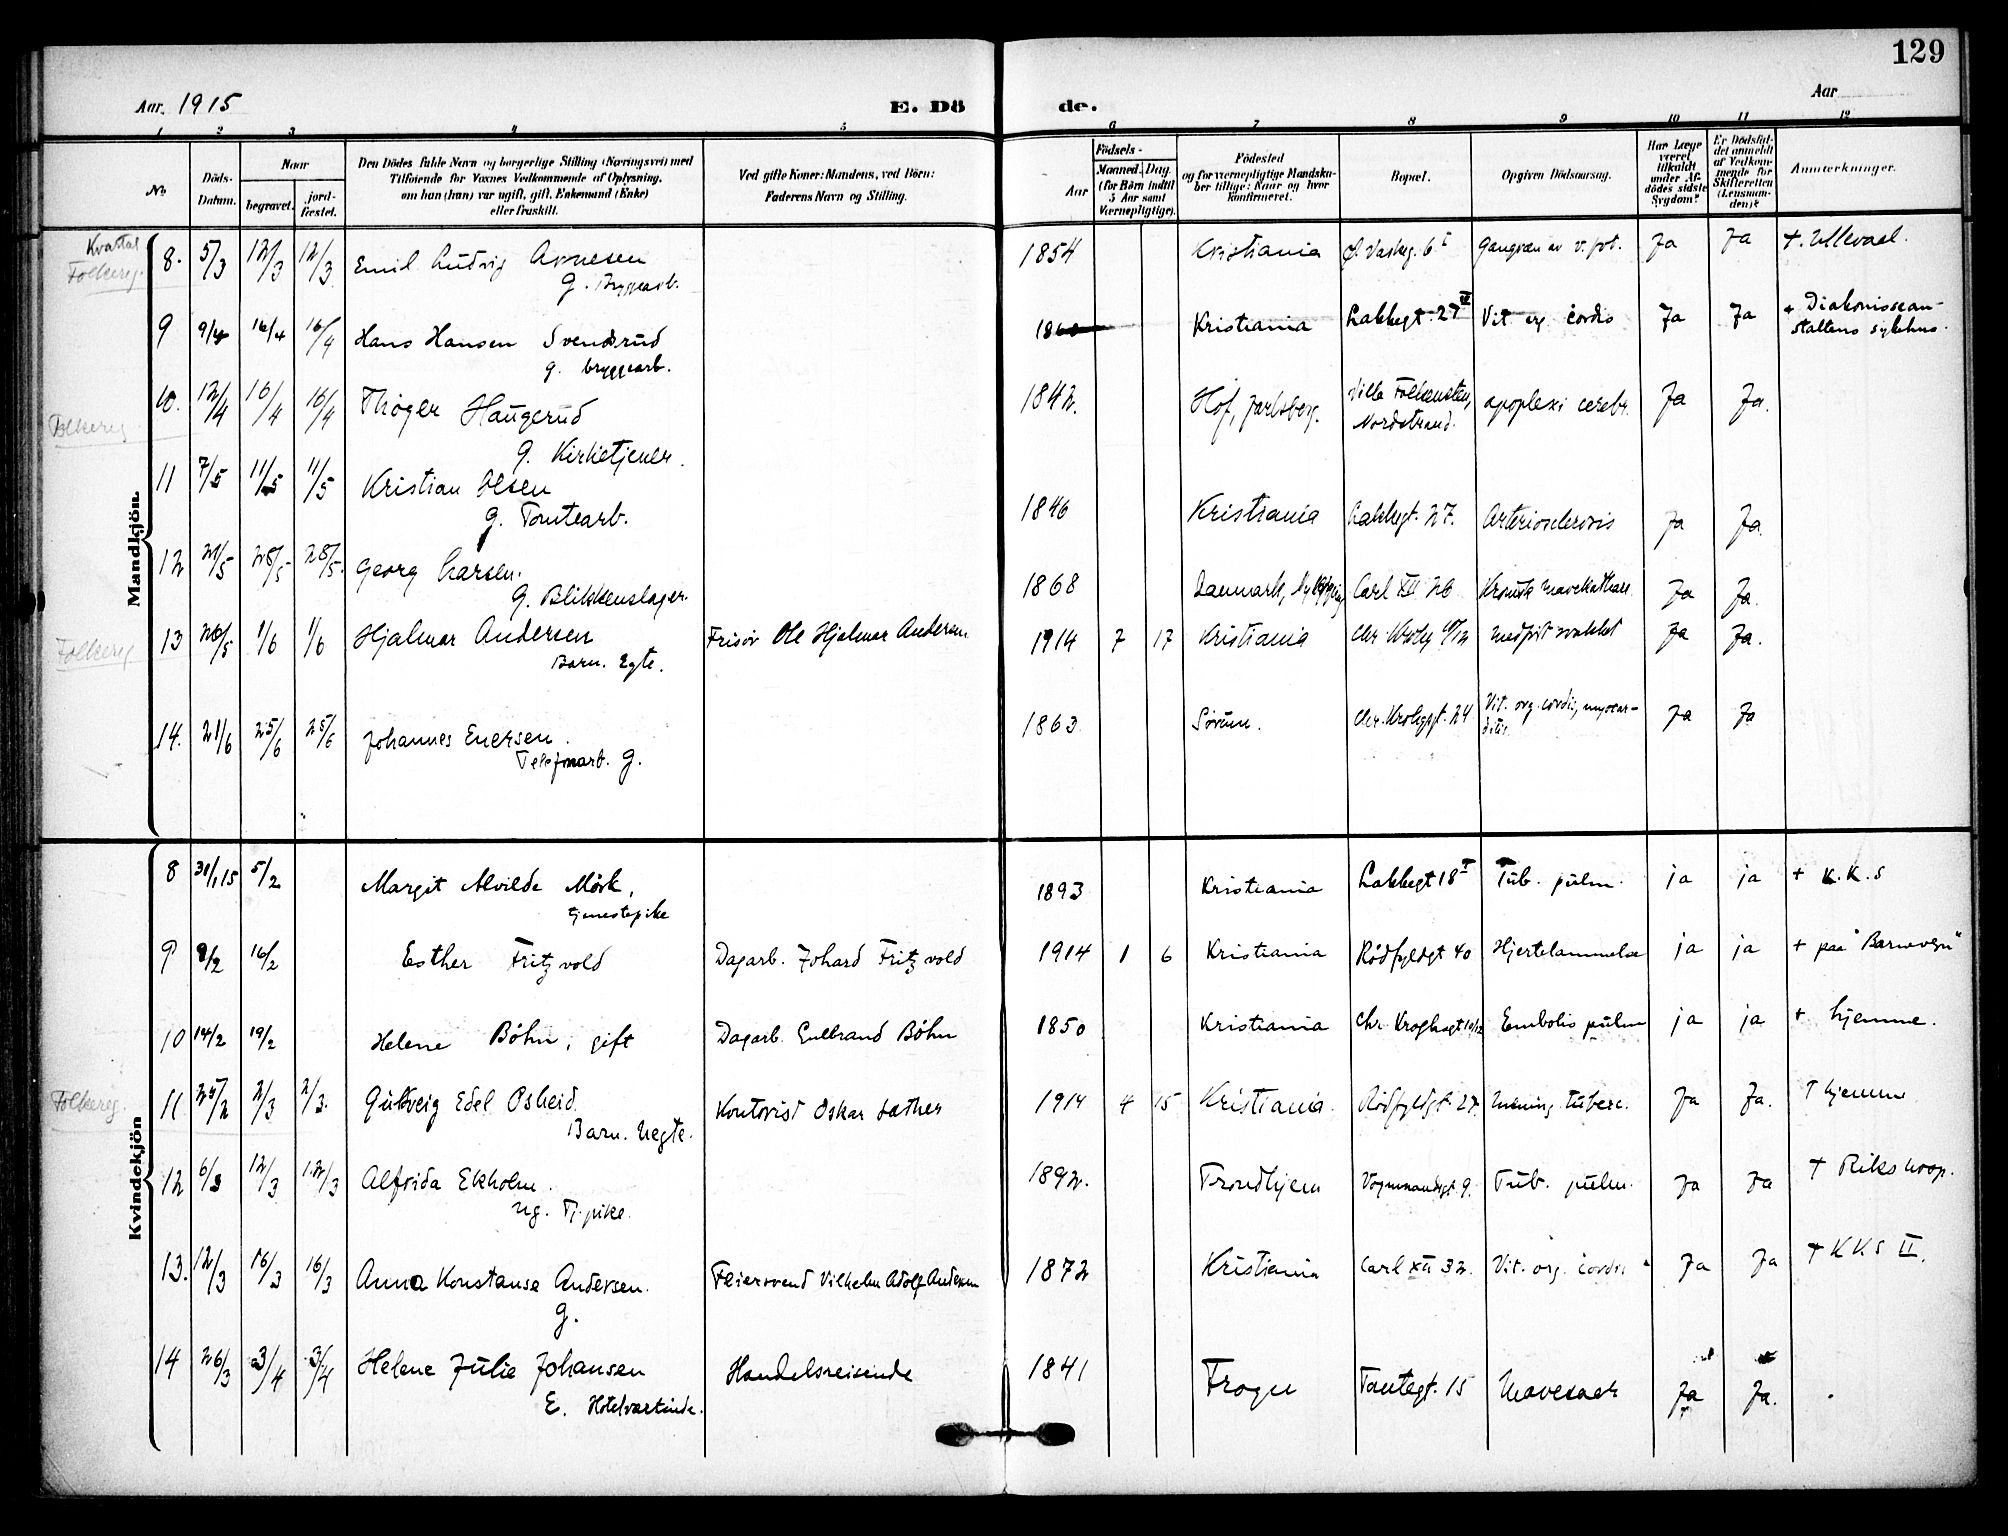 129
Aar. 1915
E. Dö
de.
Aar
1 2 3 4 5 6 7 8 9 10 11 12
No
Döds-Datum.
Naar
begravet.
jord-fæstet.
Den Dödes fulde Navn og borgerlige Stilling (Næringsvei) med
Tilføiende for Voxnes Vedkommende af Oplysning,
om han (hun) var ugift, gift, Enkemand (Enke)
eller fraskilt.
Ved gifte Koner: Mandens, ved Börn:
Faderens Navn og Stilling.
Födsels-
Aar
Maaned. Dag.
(for Börn indtil
5 Aar samt
Værnepligtige).
Födested
og for værnepligtige Mandska-
ber tillige: Naar og hvor
konfirmeret.
Bopæl.
Opgiven Dödsaarsag.
Har Læge
været
tilkaldt
under Af-
dödes sidste
Sygdom?
Er Dödsfal-
det anmeldt
af Vedkom-
mende for
Skifteretten
(Lensman-
den)?
Anmærkninger.
Mandkjön
Folkereg.
8. 5/3 12/3 12/3 Emil Ludvig Arnesen 1854 Kristiania 6 I Gangræn av v. fot. Ja Ja +. Ullevaal.
g. Byggearb.
9 9/4 16/4 16/4 Hans Hansen Svendsrud Kristiania Lakkegt. 27 Vit. org. cordis Ja Ja + Diakonissean-
staltens sykehus.
g. byggearb.
Folkereg
10. 12/4 16/4 16/4 Thøger Haugerud 1842. Hof, Jarlsberg. Villa Folkensten, apoplexi cerebr. Ja Ja.
Nordstrand.
g. Kirketjener.
11 7/5 11/5 11/5 Kristian Olsen 1846 Kristiania Lakkegt. 27. Arteriosclerosis Ja Ja.
g. Tomtearb.
12 21/5 28/5 28/5. Georg Larsen. 1868 Danmark, Carl XII 26 Kronisk mavekatharr Ja Ja.
g. Blikkenslager.
Folkereg
13 26/5 1/6 1/6 Hjalmar Andersen Frisør Ole Hjalmar Andersen 1914 7 17 Kristiania Chr. Krohg 10/12 medfødt svakhet Ja Ja.
Barn. Egte.
14. 21/6 25/6 25/6 Johannes Enersen. 1863 Sørum. Chr. Krohgsgt. 24 Vit. org. cordis, myocar-
ditis. Ja Ja
Telefonarb. g.
Kvindekjön
8 31/1 15 5/2 Margit Alvilde Mörk, 1893 Kristiania Lakkegt 18 I Tub. pulm. ja ja + K.K.S
tjenestepike
9 9/2 16/2 Esther Fritzvold Dagarb. Johard Fritzvold 1914 1 6 Kristiania Rödfyldgt 40 Hjertelammelse ja ja + paa "Barnevern"
10 14/2 19/2 Helene Böhn, gift Dagarb. Gulbrand Böhn 1850 Kristiania Chr. Kroghsgt 10/12 Embolis pulm ja ja + hjemme.
Folkereg.
11 25/2 2/3 2/3. Gudveig Edel Osheid. Kontorist Oskar Læther 1914 4 15 Kristiania. Rödfyldgt. 27. Mening. tuberc. Ja Ja. + hjemme
Barn. Uegte.
12 6/3 12/3 12/3 Alfrida Ekholm. 1892. Trondhjem Vognmandsgt 9. Tub. pulm. Ja Ja + Rikshosp.
Ug. Tj. pike.
13. 12/3 16/3 16/3 Anna Konstanse Andersen. Feiersvend Vilhelm Adolf Andersen 1872 Kristiania Carl XII 32. Vit. org. cordis Ja Ja + KKS II.
g.
14 26/3 3/4 3/4 Helene Julie Johansen Handelsreisende 1841 Frogn Tomtegt. 15 Mavesaar Ja Ja.
E. Hotelvertinde.